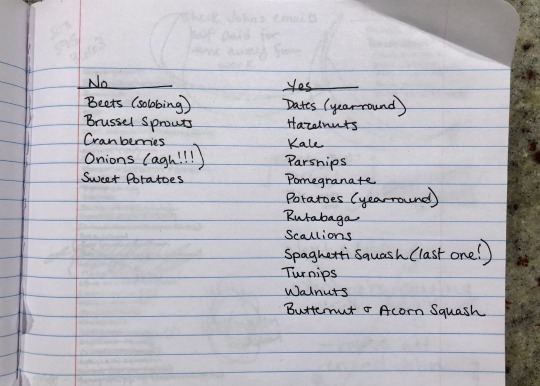 No
Beets (sobbing)
Brussel Sprouts
Cranberries
Onions (agh!!!)
Sweet Potatoes
Yes
Dates (year round)
Hazelnuts
Kale
Parsnips
Pomegranate
Potatoes (year round)
Rutabaga
Scallions
Spaghetti Squash (last one!)
Turnips
Walnuts
Butternut & Acorn Squash